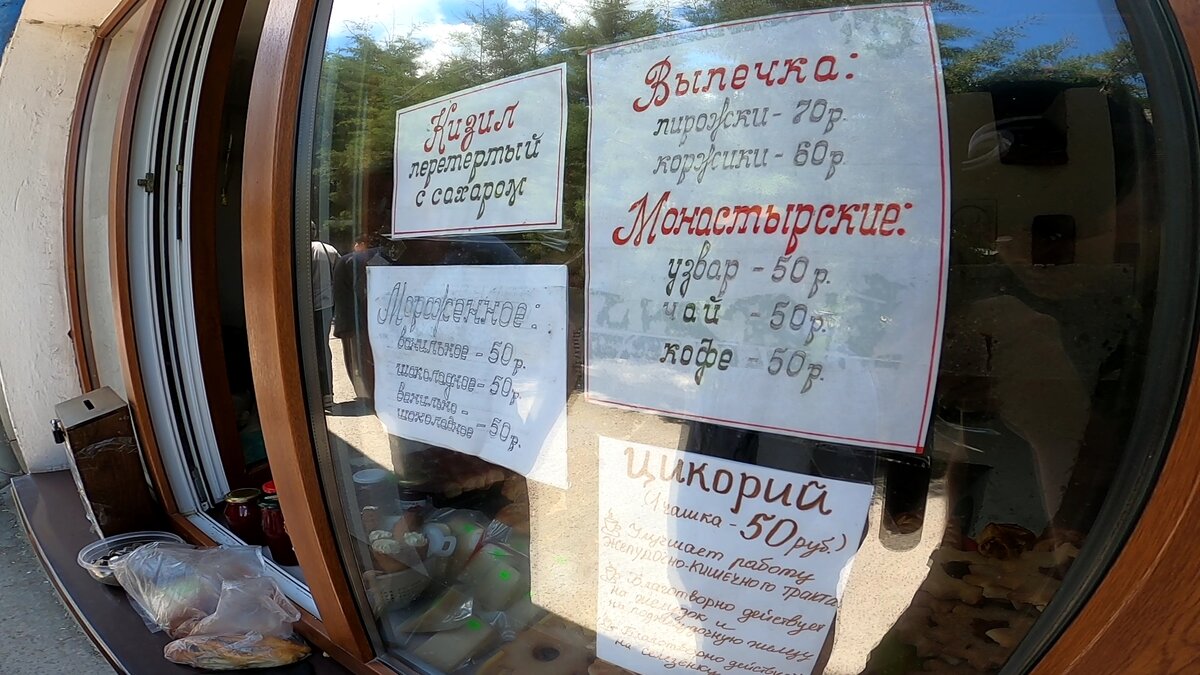 Кизил
перетертый
с сахаром
Выпечка:
пирожки - 70р.
коржики - 60р.
Монастырские:
узвар - 50р.
чай - 50р.
кофе - 50р.
Мороженное:
ванильное - 50р.
шоколадное - 50р.
ванильно -
шоколадное - 50р.
цикорий
чашка - 50 руб.)
Улучшает работу
желудочно-кишечного тракта
Благотворно действует
на желудок и
на поджелудочную железу
действует
на селезёнку